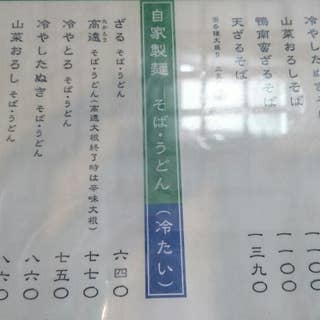 冷やし
山菜おろしそば 一一〇〇
鴨南蛮ざるそば 一一〇〇
天ざるそば 一三九〇
自家製麺 そば・うどん (冷たい)
ざる そば・うどん 六四〇
高遠 そば・うどん (高遠大根終了時は辛味大根) 七七〇
冷やとろ そば・うどん 七五〇
冷やしたぬき そば・うどん 八六〇
山菜おろし そば・うどん 八六〇